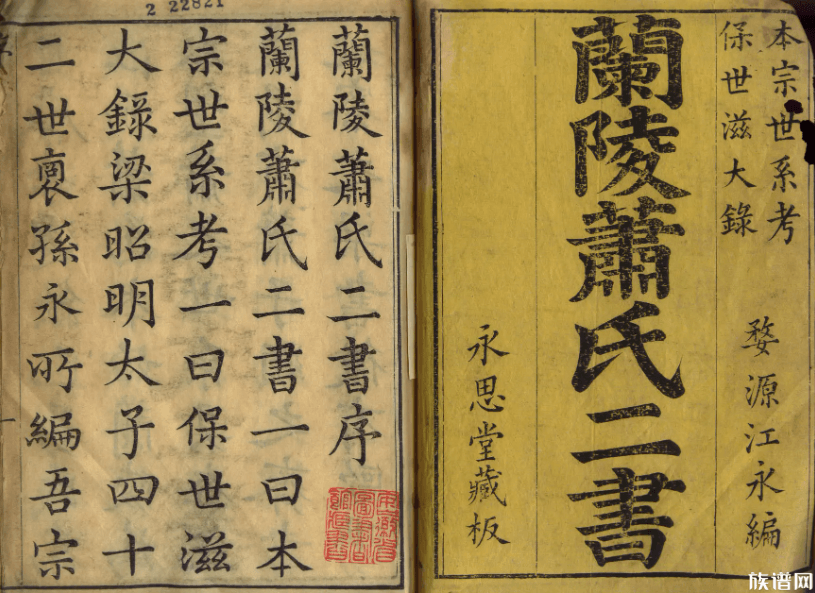 本宗世系考
保世滋大錄
婺源江永編
蘭陵蕭氏二書
永思堂藏板
2 22821
蘭陵蕭氏二書序
蘭陵蕭氏二書一曰本
宗世系考一曰保世滋
大錄梁昭明太子四十
二世裔孫永所編吾宗
族谱网